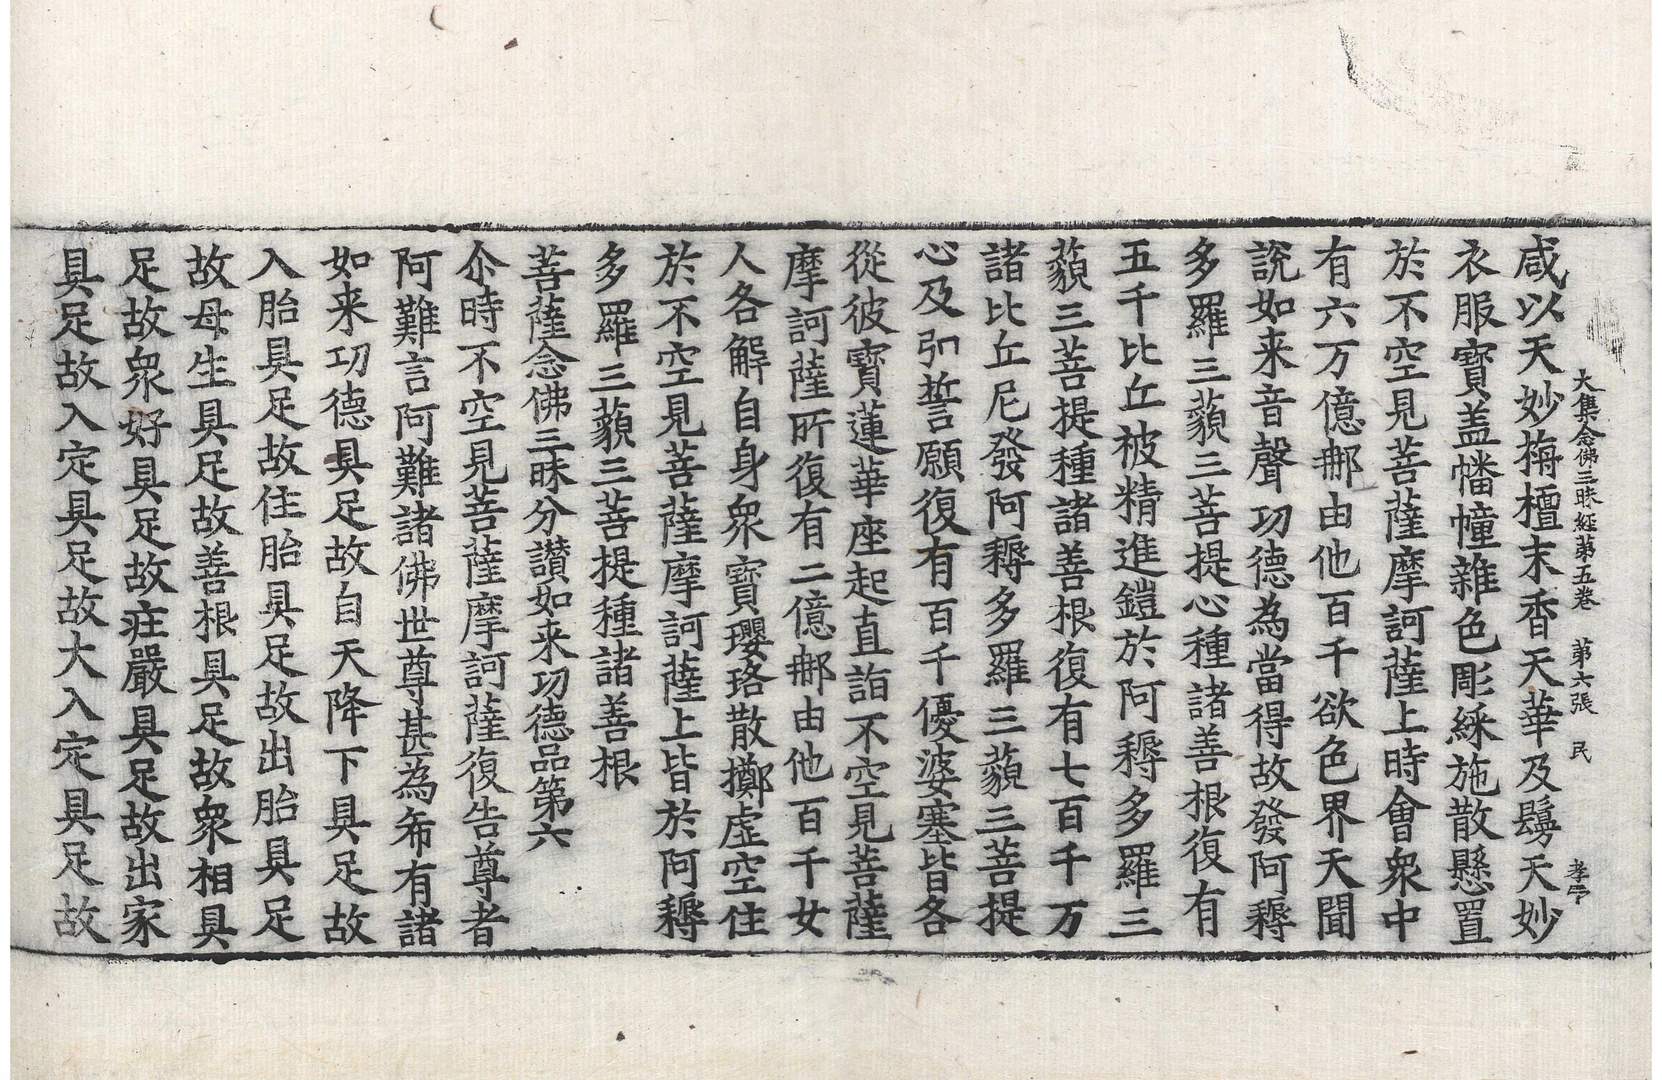 大集念佛三昧經苐五卷　第六張　民　孝
咸以天妙栴檀末香天華及鬘天妙
衣服寶盖幡幢雜色彫綵施散懸置
於不空見菩薩摩訶薩上時會衆中
有六万億郍由他百千欲色界天聞
說如来音聲功德為當得故發阿耨
多羅三藐三菩提心種諸善根復有
五千比丘被精進鎧於阿耨多羅三
藐三菩提種諸善根復有七百千万
諸比丘尼發阿耨多羅三藐三菩提
心及弘誓願復有百千優婆塞皆各
從彼寶蓮華座起直詣不空見菩薩
摩訶薩所復有二億郍由他百千女
人各解自身衆寶瓔珞散擲虛空住
於不空見菩薩摩訶薩上皆於阿耨
多羅三藐三菩提種諸善根
菩薩念佛三昧分讃如来功德品第六
尒時不空見菩薩摩訶薩復告尊者
阿難言阿難諸佛世尊甚為希有諸
如来功德具足故自天降下具足故
入胎具足故住胎具足故出胎具足
故母生具足故善根具足故衆相具
足故衆好具足故莊嚴具足故出家
具足故入定具足故大入定具足故